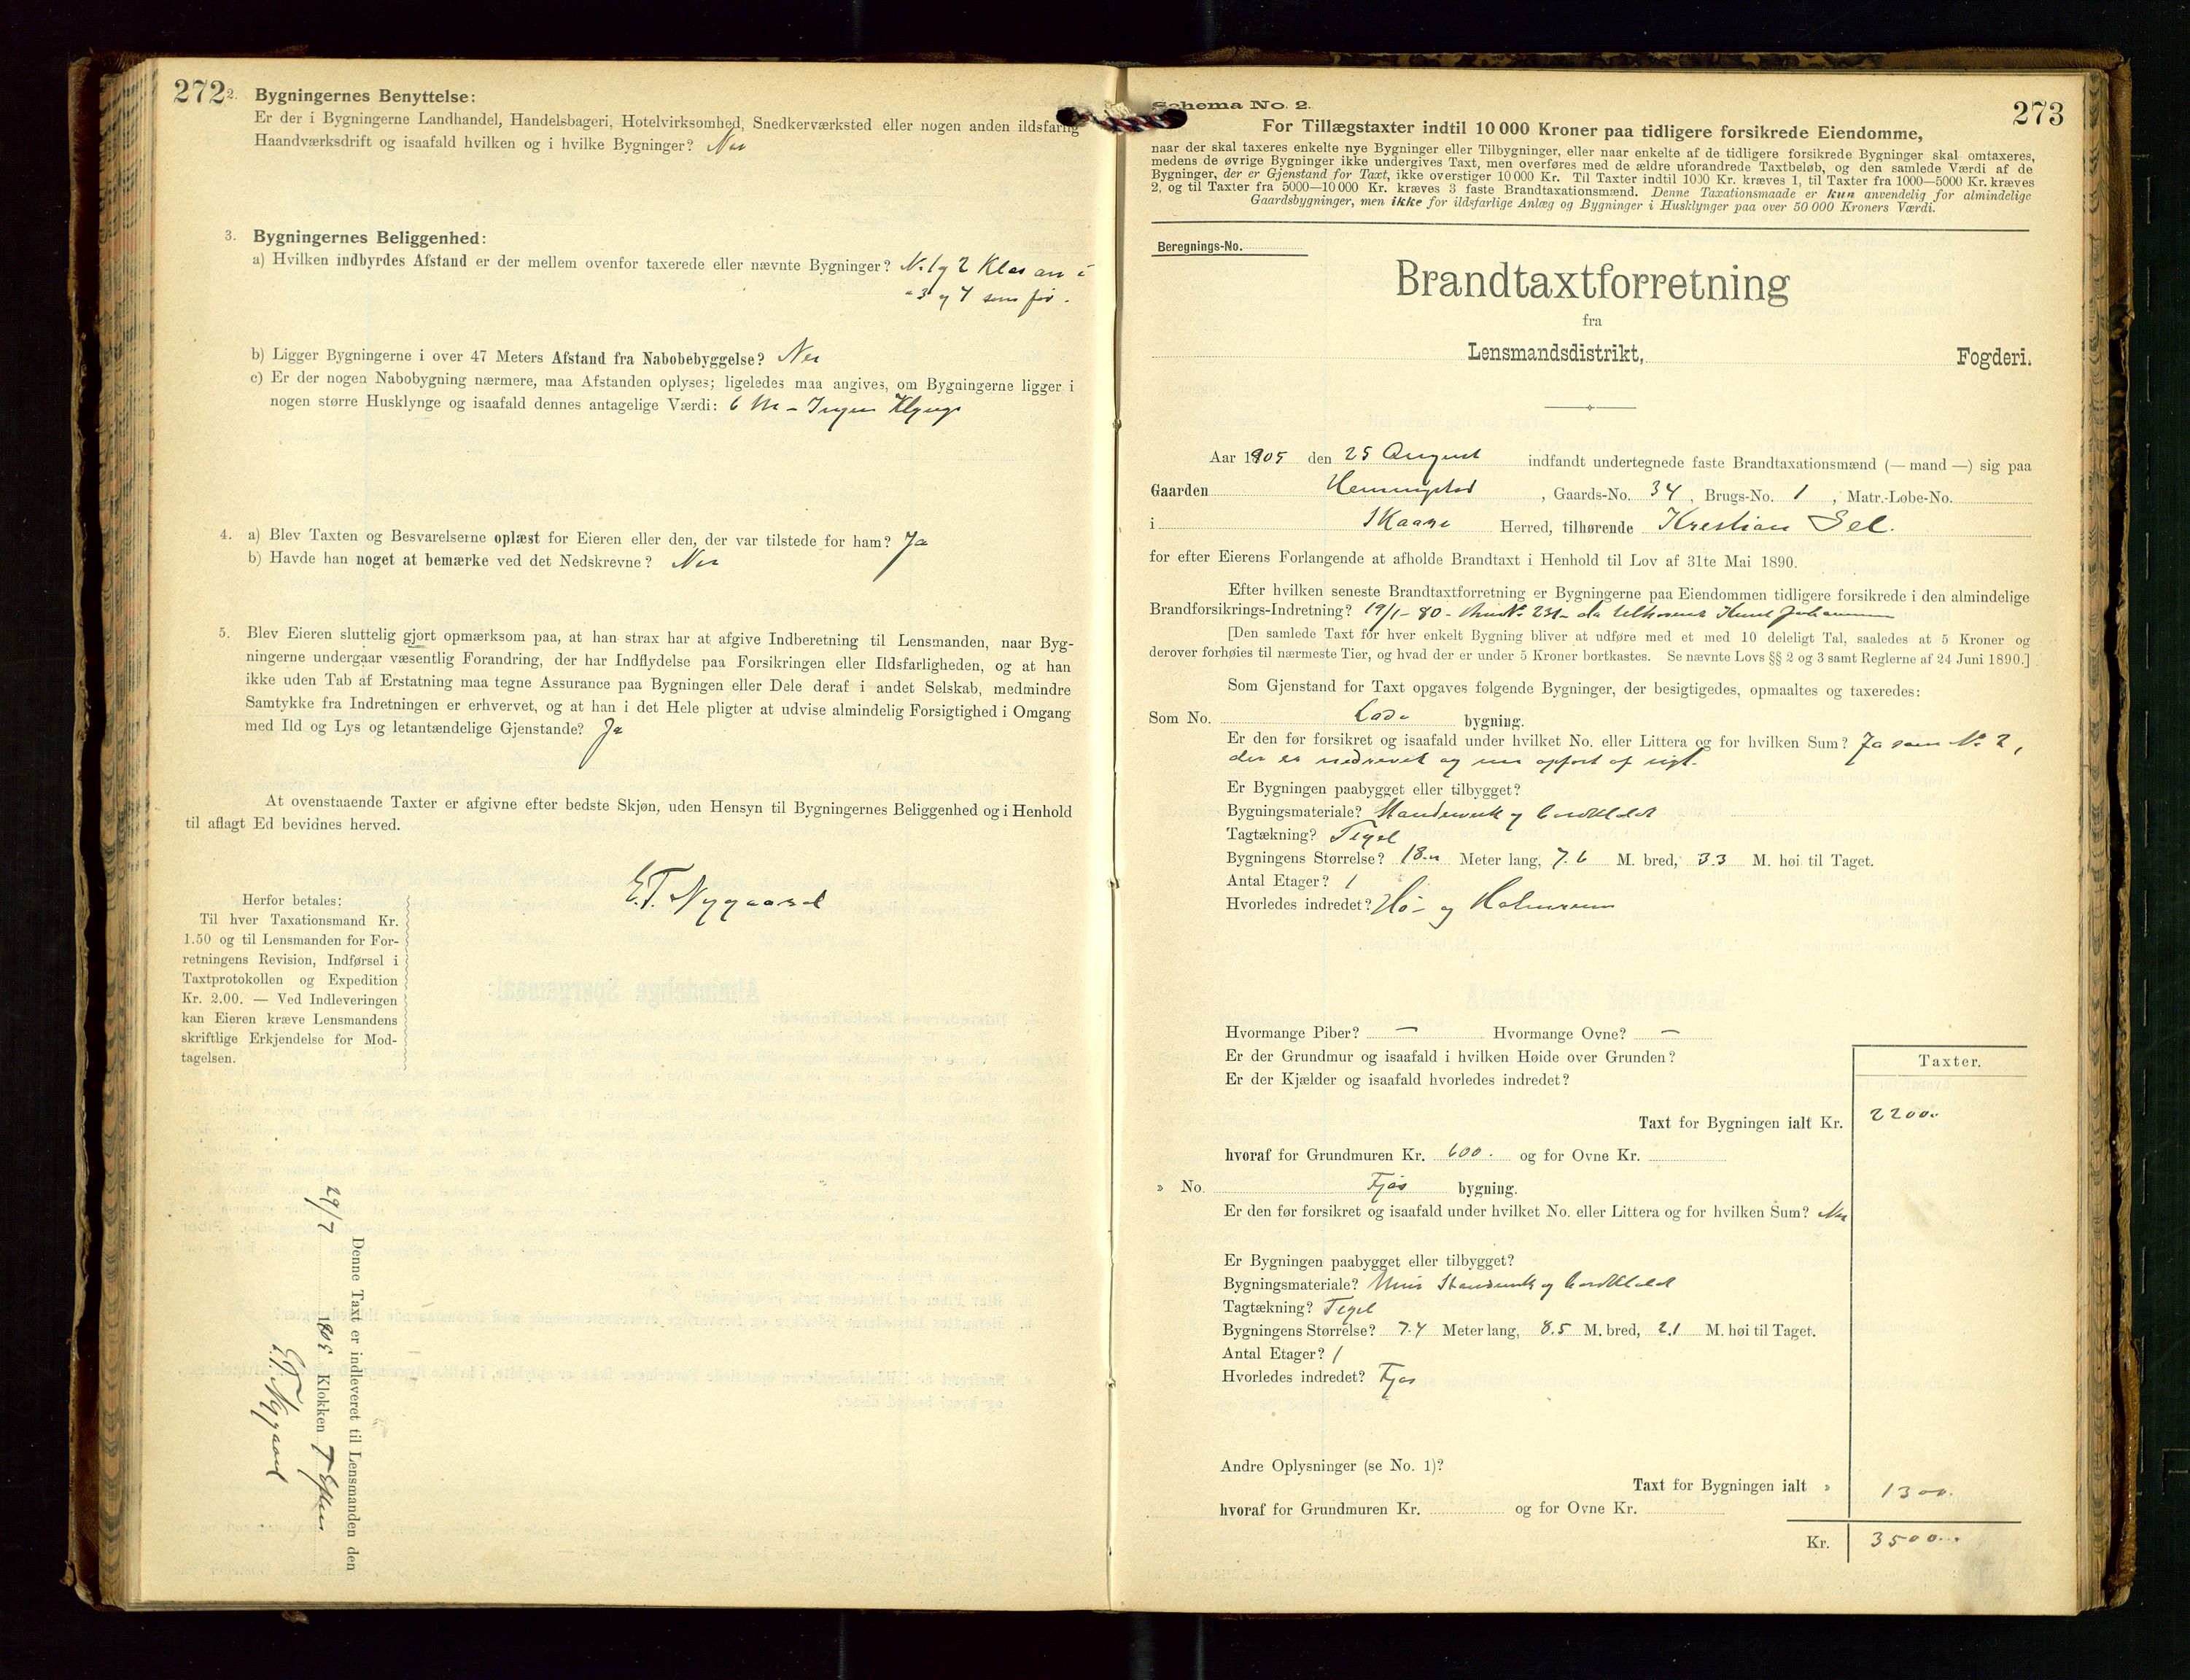 272
2. Bygningernes Benyttelse:
Er der i Bygningerne Landhandel, Handelsbageri, Hotelvirksomhed, Snedkerværksted eller nogen anden ildsfarlig
Haandværksdrift og isaafald hvilken og i hvilke Bygninger? Nei
3. Bygningernes Beliggenhed:
a) Hvilken indbyrdes Afstand er der mellem ovenfor taxerede eller nævnte Bygninger? No. 1 og 2
" 3 og 4 som før.
b) Ligger Bygningerne i over 47 Meters Afstand fra Nabobebyggelse? Nei
c) Er der nogen Nabobygning nærmere, maa Afstanden oplyses; ligeledes maa angives, om Bygningerne ligger i
nogen større Husklynge og isaafald dennes antagelige Værdi: 6 M – Ingen Klynge
4. a) Blev Taxten og Besvarelserne oplæst for Eieren eller den, der var tilstede for ham? Ja
b) Havde han noget at bemærke ved det Nedskrevne? Nei
5. Blev Eieren sluttelig gjort opmærksom paa, at han strax har at afgive Indberetning til Lensmanden, naar Byg-
ningerne undergaar væsentlig Forandring, der har Indflydelse paa Forsikringen eller Ildsfarligheden, og at han
ikke uden Tab af Erstatning maa tegne Assurance paa Bygningen eller Dele deraf i andet Selskab, medmindre
Samtykke fra Indretningen er erhvervet, og at han i det Hele pligter at udvise almindelig Forsigtighed i Omgang
med Ild og Lys og letantændelige Gjenstande? Ja
At ovenstaaende Taxter er afgivne efter bedste Skjøn, uden Hensyn til Bygningernes Beliggenhed og i Henhold
til aflagt Ed bevidnes herved.
E.T. Nygaard
Herfor betales:
Til hver Taxationsmand Kr.
1.50 og til Lensmanden for For-
retningens Revision, Indførsel i
Taxtprotokollen og Expedition
Kr. 2.00. — Ved Indleveringen
kan Eieren kræve Lensmandens
skriftlige Erkjendelse for Mod-
tagelsen.
Denne Taxt er indleveret til Lensmanden den
29/7 1905 Klokken 7 Efter
E.T. Nygaard
273
Schema No. 2.
For Tillægstaxter indtil 10 000 Kroner paa tidligere forsikrede Eiendomme,
naar der skal taxeres enkelte nye Bygninger eller Tilbygninger, eller naar enkelte af de tidligere forsikrede Bygninger skal omtaxeres,
medens de øvrige Bygninger ikke undergives Taxt, men overføres med de ældre uforandrede Taxtbeløb, og den samlede Værdi af de
Bygninger, der er Gjenstand for Taxt, ikke overstiger 10 000 Kr. Til Taxter indtil 1000 Kr. kræves 1, til Taxter fra 1000—5000 Kr. kræves
2, og til Taxter fra 5000—10 000 Kr. kræves 3 faste Brandtaxationsmænd. Denne Taxationsmaade er kun anvendelig for almindelige
Gaardsbygninger, men ikke for ildsfarlige Anlæg og Bygninger i Husklynger paa over 50 000 Kroners Værdi.
Beregnings-No.
Brandtaxtforretning
fra
Lensmandsdistrikt, Fogderi.
Aar 1905 den 25 August indfandt undertegnede faste Brandtaxationsmænd (— mand —) sig paa
Gaarden Hemmingstad, Gaards-No. 34, Brugs-No. 1, Matr.-Lobe-No.
i Skaare Herred, tilhørende Krestian Sel.
for efter Eierens Forlangende at afholde Brandtaxt i Henhold til Lov af 31te Mai 1890.
Efter hvilken seneste Brandtaxtforretning er Bygningerne paa Eiendommen tidligere forsikrede i den almindelige
Brandforsikrings-Indretning? 19/1 - 80 - No. 231 - da tilhørende Knut Johannesen
[Den samlede Taxt for hver enkelt Bygning bliver at udføre med et med 10 deleligt Tal, saaledes at 5 Kroner og
derover forhøies til nærmeste Tier, og hvad der er under 5 Kroner bortkastes. Se nævnte Lovs §§ 2 og 3 samt Reglerne af 24 Juni 1890.]
Som Gjenstand for Taxt opgaves følgende Bygninger, der besigtigedes, opmaaltes og taxeredes:
Som No. Lade bygning.
Er den før forsikret og isaafald under hvilket No. eller Littera og for hvilken Sum? Ja som No. 2,
der er nedrevet og nu opført af nyt.
Er Bygningen paabygget eller tilbygget?
Bygningsmateriale? Standerverk og bordklædt
Tagtækning? Tegel
Bygningens Størrelse? 18.0 Meter lang, 7.6 M. bred, 3.3 M. høi til Taget.
Antal Etager? 1
Hvorledes indredet? Hø- og Halmrum
Hvormange Piber? — Hvormange Ovne? —
Er der Grundmur og isaafald i hvilken Høide over Grunden?
Er der Kjælder og isaafald hvorledes indredet?
Taxter.
Taxt for Bygningen ialt Kr. 2200.
hvoraf for Grundmuren Kr. 600. og for Ovne Kr.
» No. Fjøs bygning.
Er den før forsikret og isaafald under hvilket No. eller Littera og for hvilken Sum? Nei
Er Bygningen paabygget eller tilbygget?
Bygningsmateriale? Mur Standerverk og bordklædt
Tagtækning? Tegel
Bygningens Størrelse? 7.4 Meter lang, 8.5 M. bred, 2.1 M. høi til Taget.
Antal Etager? 1
Hvorledes indredet? Fjøs
Andre Oplysninger (se No. 1)?
Taxt for Bygningen ialt » 1300.
hvoraf for Grundmuren Kr. og for Ovne Kr.
Kr. 3500.